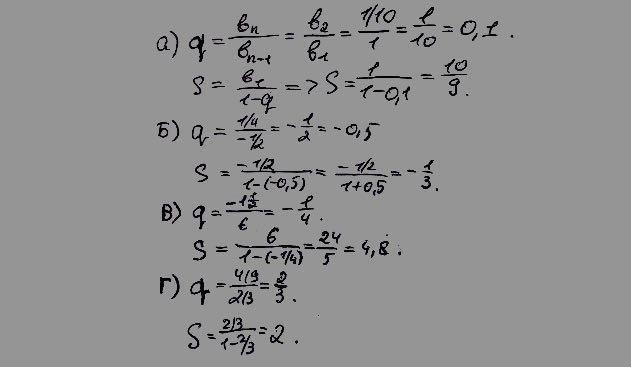 а) q = вn/вn-1 = в2/в1 = (1/10)/1 = 1/10 = 0,1.
S = в1/(1-q) => S = 1/(1-0,1) = 10/9.
Б) q = (1/4)/(-1/2) = -1/2 = -0,5
S = (-1/2)/(1-(-0,5)) = (-1/2)/(1+0,5) = -1/3.
в) q = (-1 1/2)/6 = -1/4.
S = 6/(1-(-1/4)) = 24/5 = 4,8.
г) q = (4/9)/(2/3) = 2/3.
S = (2/3)/(1-2/3) = 2.